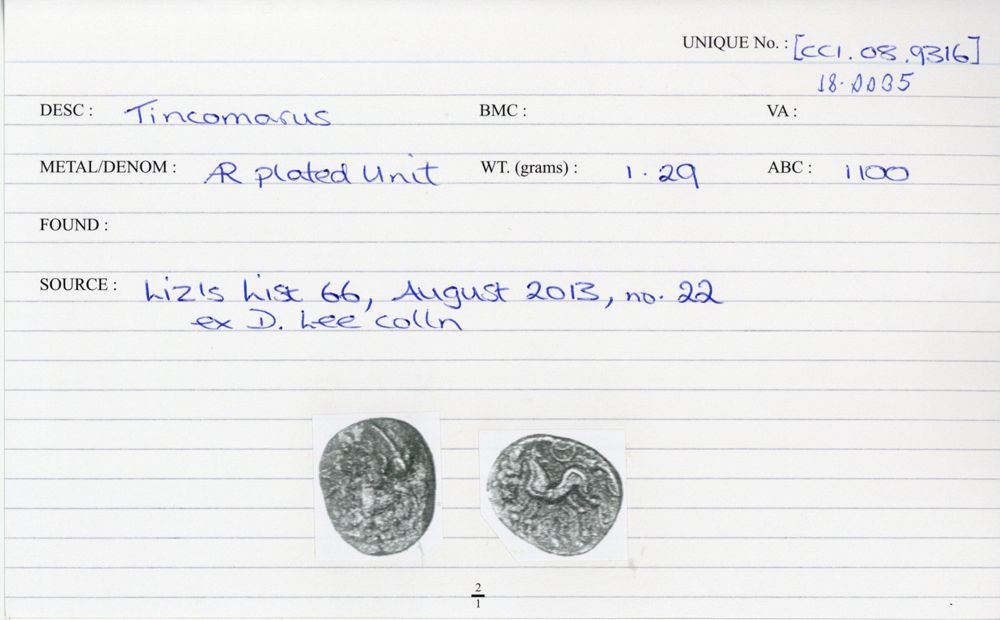 UNIQUE No. : [CCI. 08.9316]
18.0035
DESC : Tincomarus BMC : VA :
METAL/DENOM : AR plated Unit WT. (grams) : 1.29 ABC : 1100
FOUND :
SOURCE : Liz's List 66, August 2013, no. 22
ex D. Lee colln
2
1